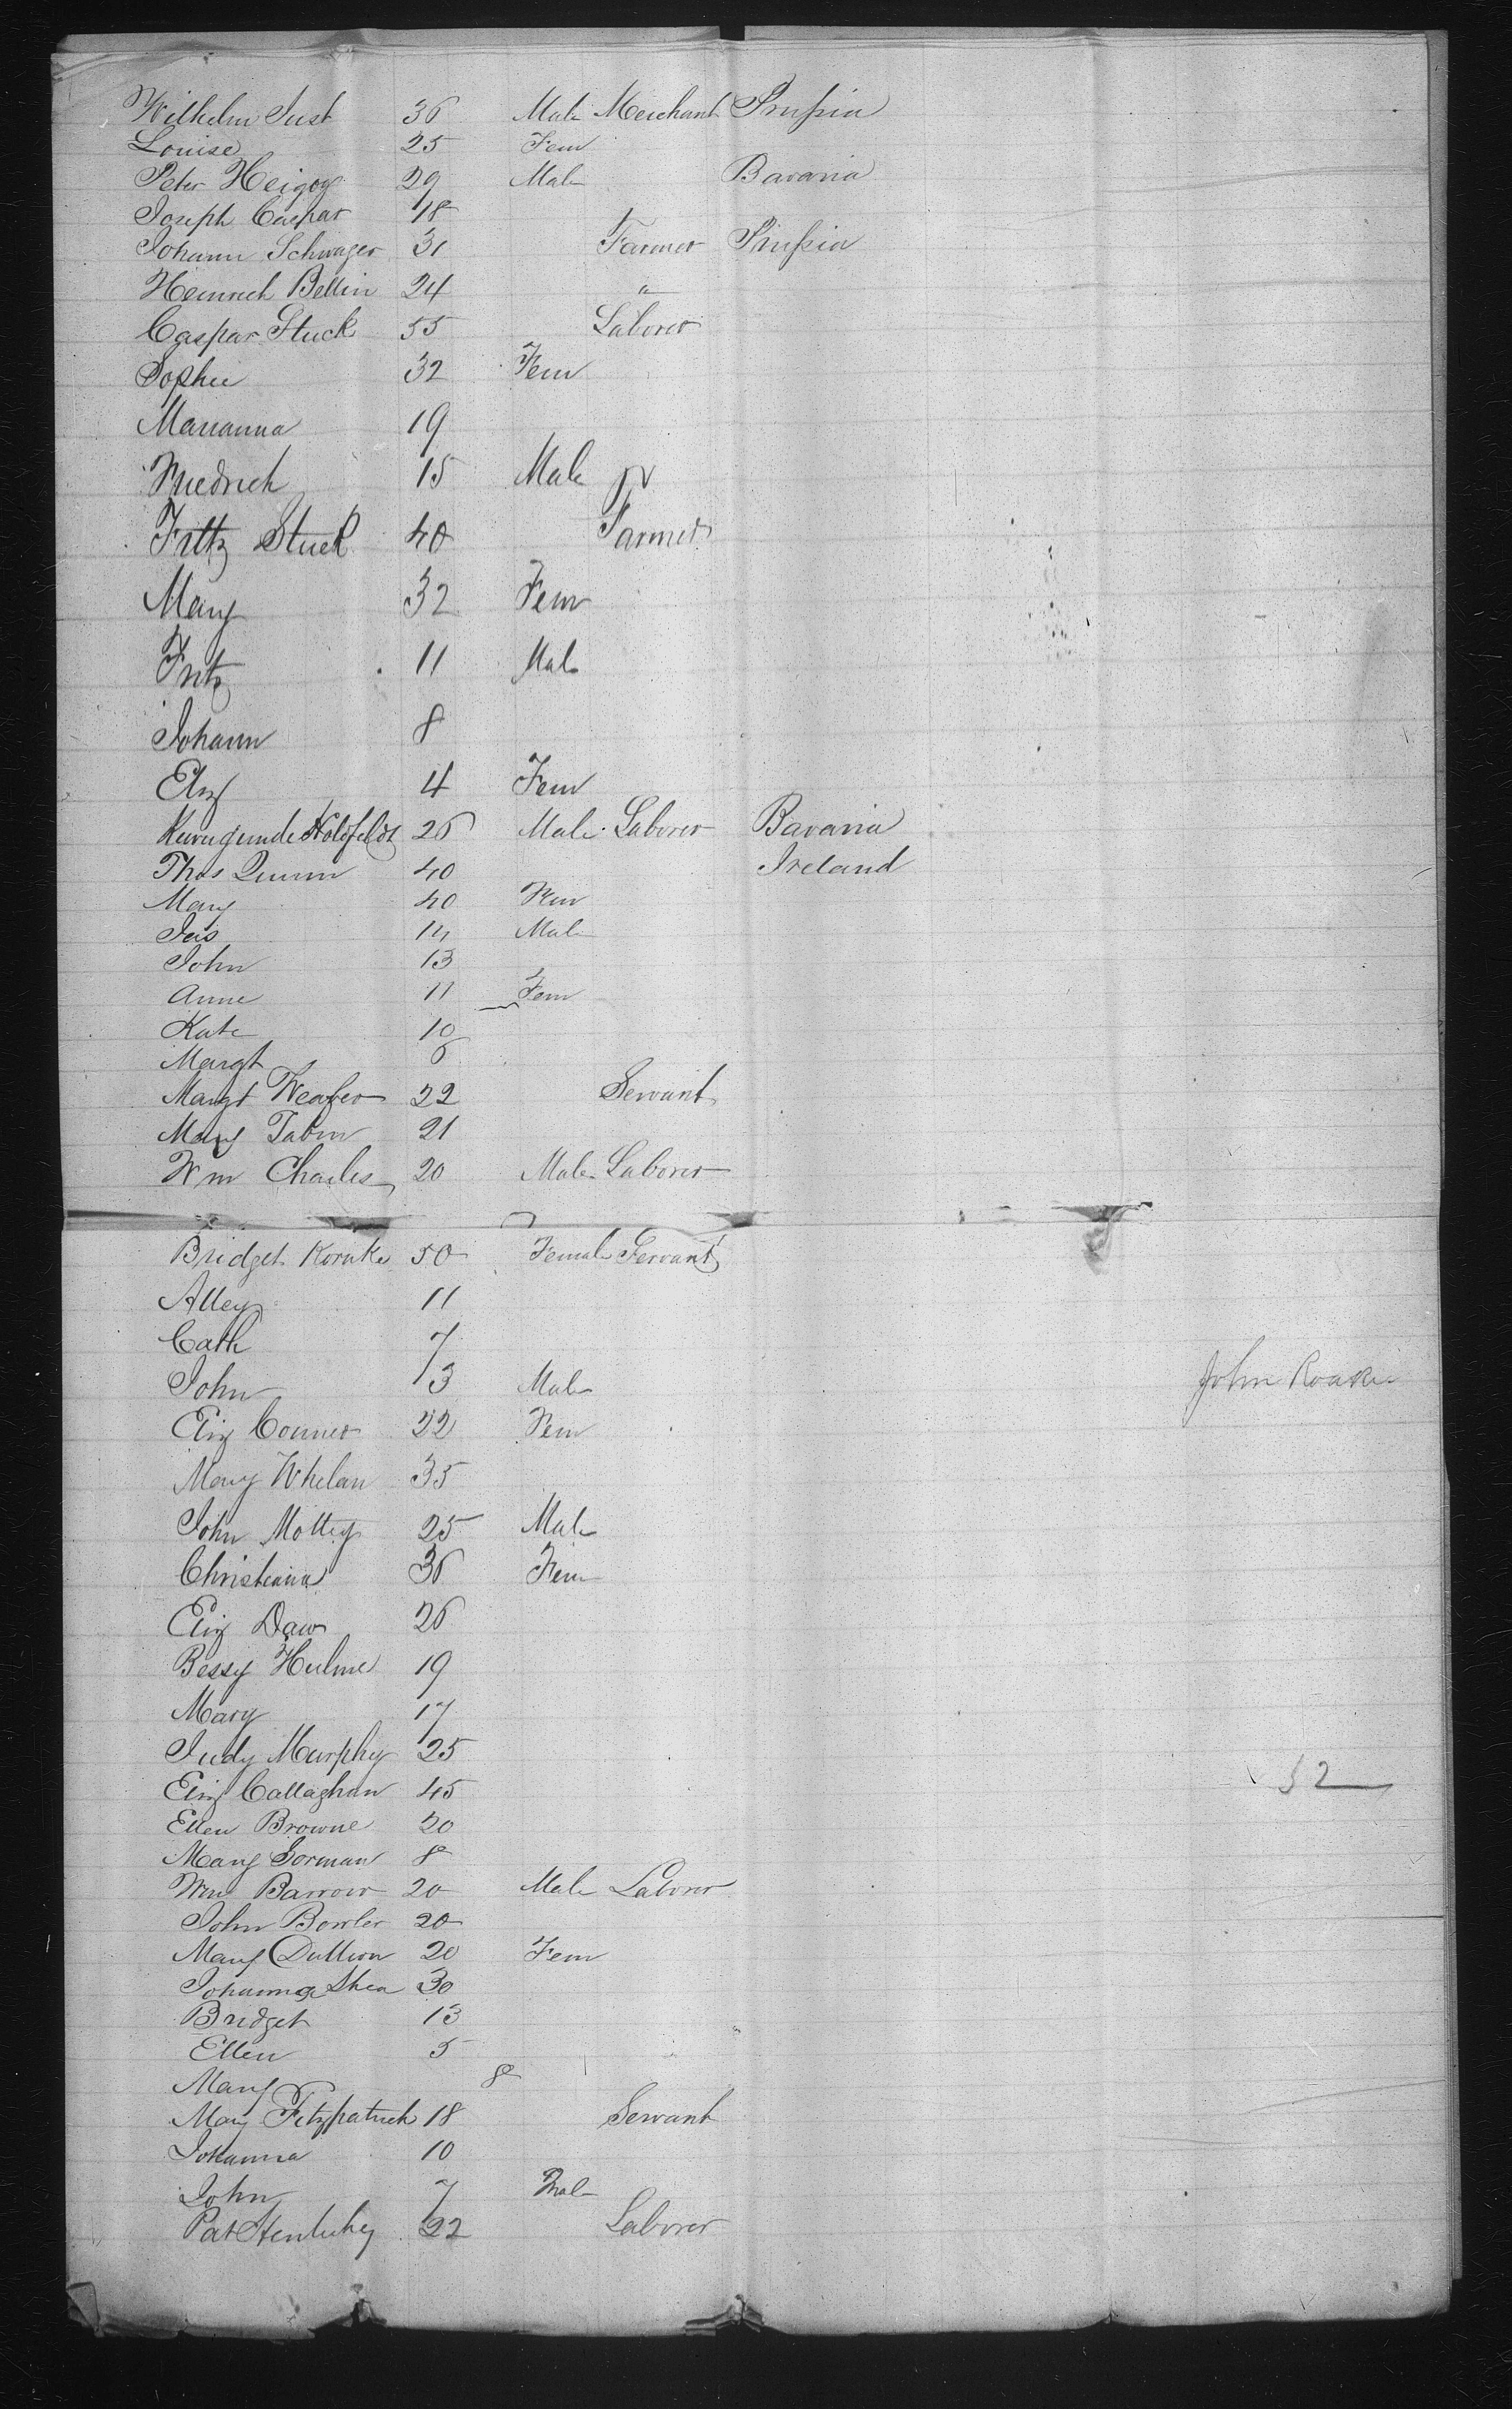 Wilhelm Just 36 Male Merchant Prussia
Louise 25 Fem
Peter 29 Male Bavaria
Joseph Caspar 18
Johann Schwager 31 Farmer Prussia
Heinrich Bellin 24 "
Caspar Stuck 55 Laborer
Sophie 32 Fem
Marianna 19
Friedrich 15 Male
Fritz Stuck 40 Farmer
Mary 32 Fem
Fritz 11 Male
Johann 8
Eliz 4 Fem
26 Male Laborer Bavaria
Thos Quinn 40 Ireland
Mary 40 Fem
Jas 14 Male
John 13
Anne 11 Fem
Kate 10
Margt 6
Margt Weafer 22 Servant
Mary Tobin 21
Wm Charles 20 Male Laborer
Bridget 50 Female Servant
Alley 11
Cath 7
John 3 Male John Roake
Eliz Conner 22 Fem
Mary Whelan 35
John Mottey 25 Male
Christiana 36 Fem
Eliz Daw 26
Bessy Hulme 19
Mary 17
Judy Murphy 25
Eliz Callaghan 45 52
Ellen Browne 20
Mary Gorman 8
Wm Barrow 20 Male Laborer
John Bowler 20
Mary 20 Fem
Johanna Shea 30
Bridget 13
Ellen 5
Mary 8
Mary Fitzpatrick 18 Servant
Johanna 10
John 7 Male
Pat 22 Laborer